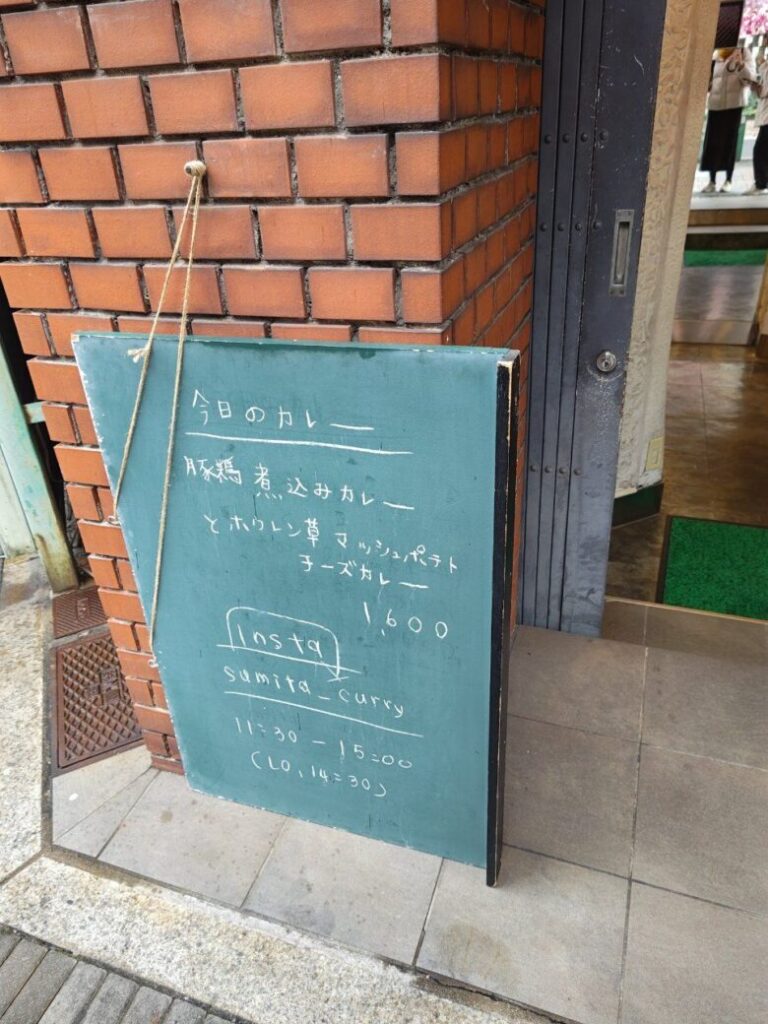 今日のカレー
豚鶏煮込みカレー
とホウレン草 マッシュポテト
チーズカレー
1,600
insta
sumita_curry
11:30 - 15:00
(LO, 14:30)